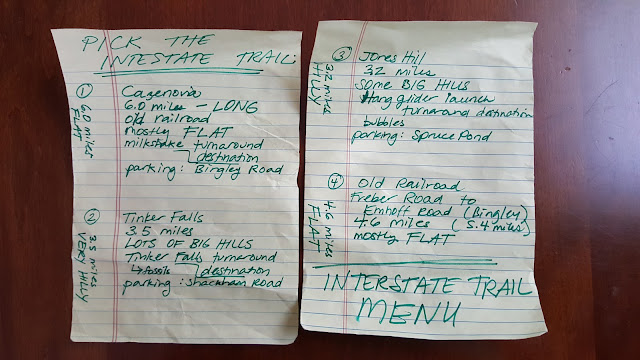 PICK THE
INTESTATE TRAIL:
① Cazenovia
6.0 miles - LONG
old railroad
mostly FLAT
milkshake turnaround
destination
parking: Bingley Road
6.0 miles
FLAT
② Tinker Falls
3.5 miles
LOTS OF BIG HILLS
Tinker Falls turnaround
↳ fossils destination
parking: Shackham Road
3.5 miles
VERY HILLY
③ Jones Hill
3.2 miles
SOME BIG HILLS
Hang glider launch
turnaround destination
bubbles
parking: Spruce Pond
3.2 miles
HILLY
④ Old Railroad
Freber Road to
Emhoff Road (Bingley)
4.6 miles (5.4 miles)
mostly FLAT
4.6 miles
FLAT
INTERSTATE TRAIL
MENU